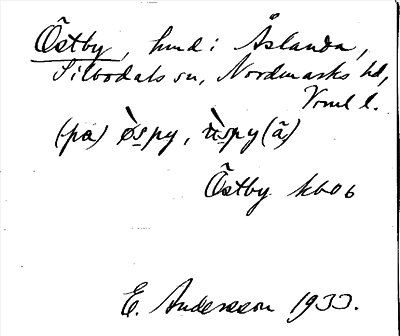 Östby, hmd i Åslanda,
Silbodals sn, Nordmarks hd,
Vrml l.
(pɑ) ø̀spy, ù̈spy (ã)
Östby kb06
E. Andersson 1933.